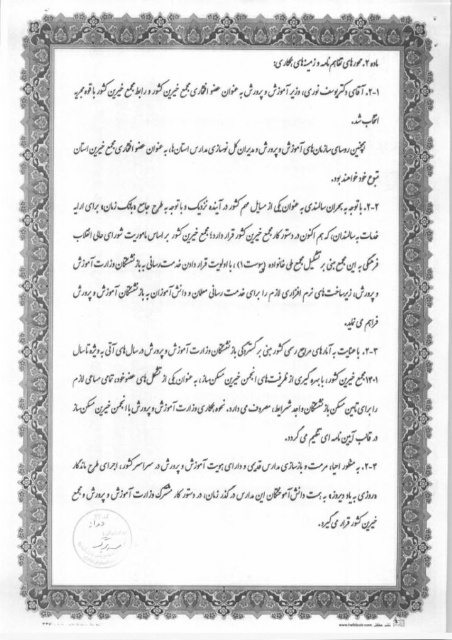 ماده ۲. محورهای تفاهم نامه و زمینه‌های همکاری:
۲-۱. آقای دکتر یوسف نوری، وزیر آموزش و پرورش به عنوان عضو افتخاری مجمع خیرین کشور و رابط مجمع خیرین کشور با قوه مجریه
انتخاب شد.
همچنین روسای سازمان‌های آموزش و پرورش و مدیران کل نوسازی مدارس استان‌ها، به عنوان عضو افتخاری مجمع خیرین استان
متبوع خود خواهند بود.
۲-۲. با توجه به بحران سالمندی به عنوان یکی از مسایل مهم کشور در آینده نزدیک و با توجه به طرح جامع «بانک زمان» برای ارایه
خدمات به سالمندان، که هم اکنون در دستور کار مجمع خیرین کشور قرار دارد؛ مجمع خیرین کشور بر اساس ماموریت شورای عالی انقلاب
فرهنگی به این مجمع مبنی بر تشکیل مجمع ملی خانواده (پیوست ۱)، با اولویت قرار دادن خدمت رسانی به بازنشستگان وزارت آموزش
و پرورش، زیرساخت‌های نرم افزاری لازم را برای خدمت رسانی معلمان و دانش آموزان به بازنشستگان آموزش و پرورش
فراهم می نماید.
۲-۳. با عنایت به آمارهای مراجع رسمی کشور مبنی بر گستردگی بازنشستگان وزارت آموزش و پرورش در سال‌های آتی به ویژه تا سال
۱۴۰۱ مجمع خیرین کشور، با بهره گیری از ظرفیت‌های انجمن خیرین مسکن ساز، به عنوان یکی از تشکل‌های عضو خود، تمامی مساعی لازم
را برای تامین مسکن بازنشستگان واجد شرایط، مصروف می دارد. نحوه همکاری وزارت آموزش و پرورش با انجمن خیرین مسکن ساز
در قالب آیین نامه ای تنظیم می گردد.
۲-۴. به منظور احیاء، مرمت و بازسازی مدارس قدیمی و دارای هویت آموزش و پرورش در سراسر کشور، اجرای طرح ماندگار
«روزی به یاد دیروز» به همت دانش آموختگان این مدارس در گذر زمان، در دستور کار مشترک وزارت آموزش و پرورش و مجمع
خیرین کشور قرار می گیرد.
www.hafizbook.com